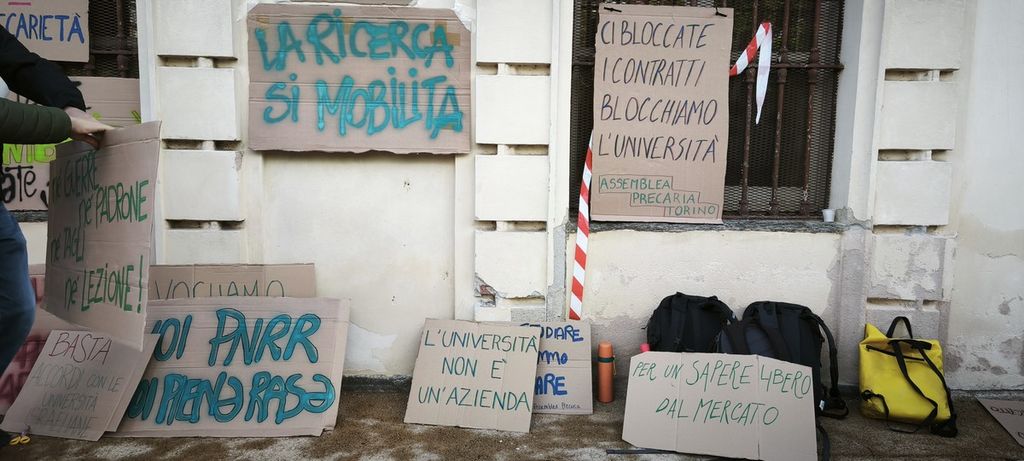 CARIETÀ
LA RICERCA
SI MOBILITA
CI BLOCCATE
I CONTRATTI
BLOCCHIAMO
L'UNIVERSITÀ
ASSEMBLEA
PRECARIA
TORINO
NE' GUERRE
NE' PADRONE
NE' TAGLI
NE' LEZIONE!
VOGLIAMO
VOI PNRR
NOI PIENƏ RASƏ
BASTA
ACCORDI CON LE
UNIVERSITÀ
ISRAELIANE
L'UNIVERSITÀ
NON È
UN'AZIENDA
ARE
PER UN SAPERE LIBERO
DAL MERCATO